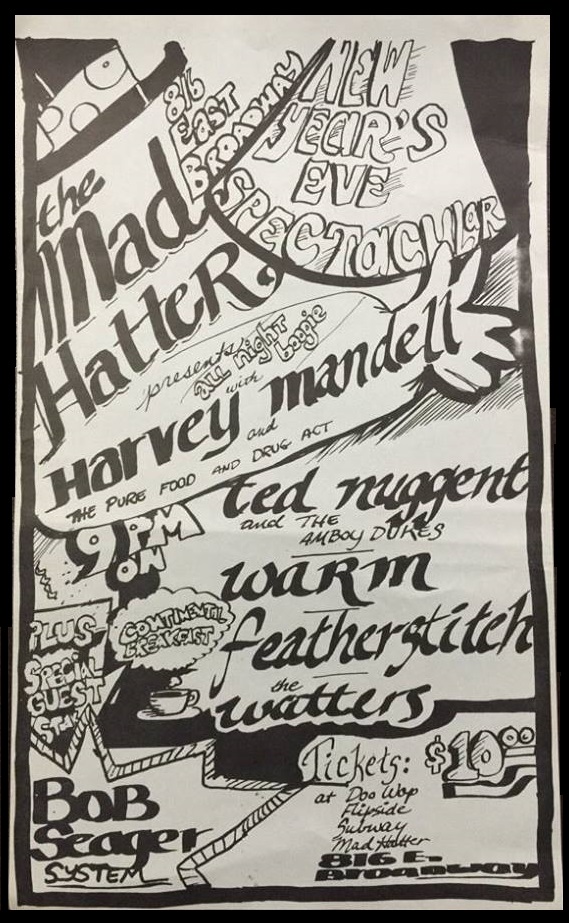 816
EAST
BROADWAY
NEW
YEAR'S
EVE
SPECTACULAR
the
Mad
HatteR
presents
all night
boogie
with
Harvey mandell
and
THE PURE FOOD AND DRUG ACT
9PM
ON
ted nuggent
and THE
AMBOY DUKES
waRm
featherstitch
the
watters
PLUS
SPECIAL
GUEST
STAR
CONTINENTL
BREAKFAST
BOB
Seager
SYSTEM
Tickets: $10.00
at Doo Wop
Flipside
Subway
Mad Hatter
816 E.
Broadway